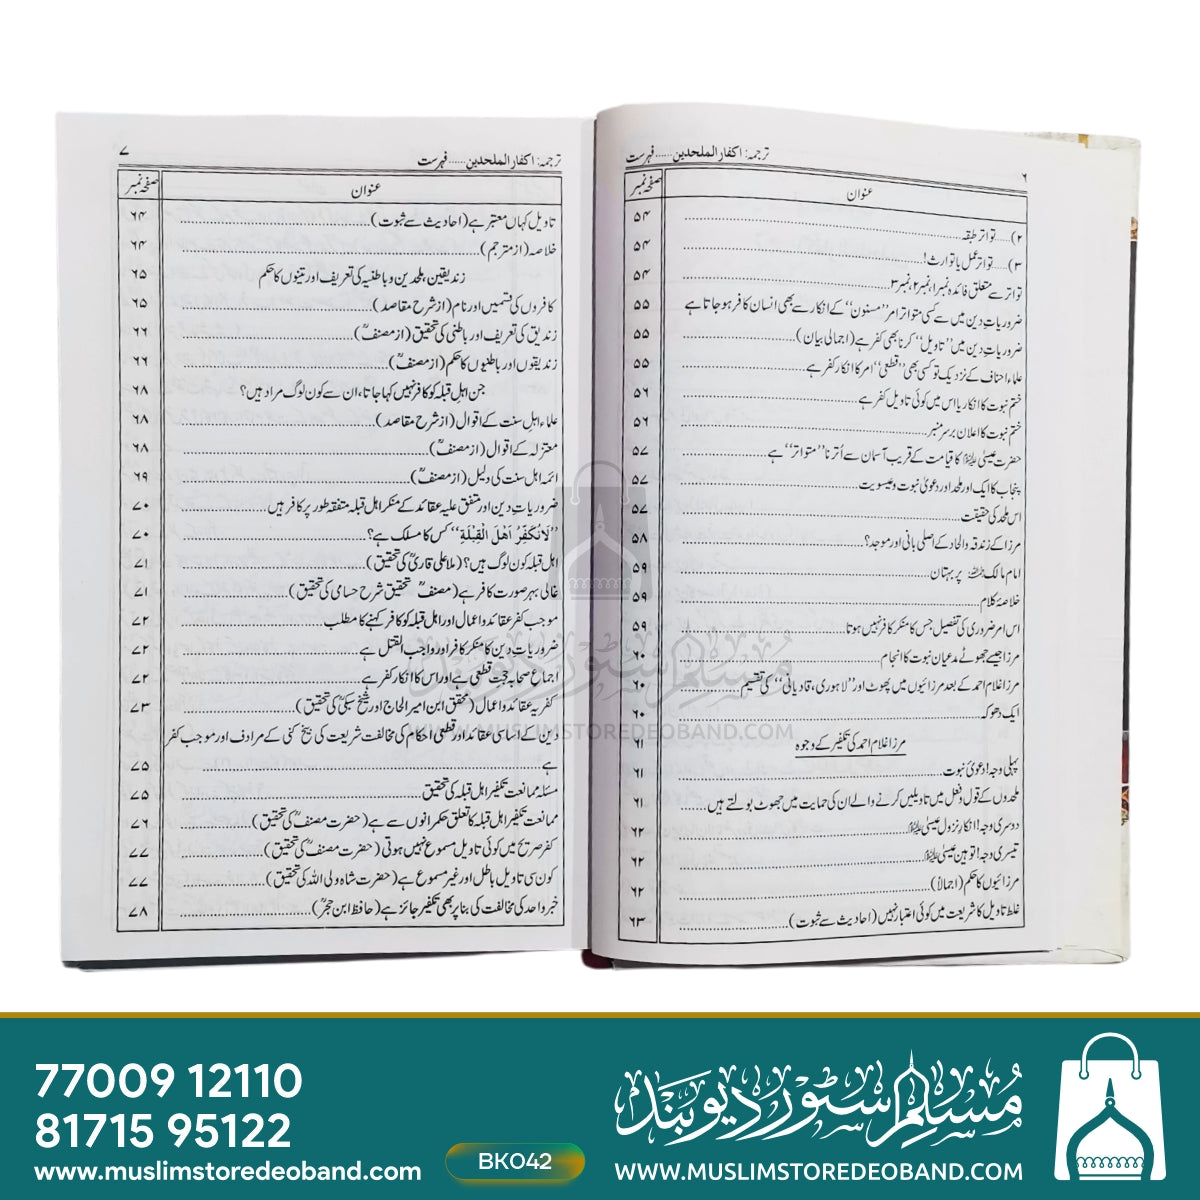 ۶
ترجمہ: اکفار الملحدین...... فہرست
عنوان صفحہ نمبر
۲).....تواتر طبقہ ۵۴
۳).....تواتر عمل یا توارث! ۵۴
تواتر سے متعلق فائدہ نمبر۱، نمبر۲، نمبر۳ ۵۴
ضروریاتِ دین میں سے کسی متواتر امر ’’مسنون‘‘ کے انکار سے بھی انسان کافر ہو جاتا ہے ۵۵
ضروریاتِ دین میں ’’تاویل‘‘ کرنا بھی کفر ہے (اجمالی بیان) ۵۵
علماء احناف کے نزدیک تو کسی بھی ’’قطعی‘‘ امر کا انکار کفر ہے ۵۵
ختم نبوت کا انکار یا اس میں کوئی تاویل کفر ہے ۵۶
ختم نبوت کا اعلان برسرِ منبر ۵۶
حضرت عیسیٰ علیہ السلام کا قیامت کے قریب آسمان سے اُترنا ’’متواتر‘‘ ہے ۵۷
پنجاب کا ایک اور ملحد اور دعویٰ نبوت وعیسویت ۵۷
اس ملحد کی حقیقت ۵۷
مرزا کے زندقہ والحاد کے اصلی بانی اور موجد؟ ۵۸
امام مالک پر بہتان ۵۹
خلاصۂ کلام ۵۹
اس امر ضروری کی تفصیل جس کا منکر کافر نہیں ہوتا ۵۹
مرزا جیسے جھوٹے مدعیان نبوت کا انجام ۶۰
مرزا غلام احمد کے بعد مرزائیوں میں پھوٹ اور ’’لاہوری، قادیانی‘‘ کی تقسیم ۶۰
ایک دھوکہ ۶۰
مرزا غلام احمد کی تکفیر کے وجوہ ۶۱
پہلی وجہ! دعویٰ نبوت ۶۱
ملحدوں کے قول وفعل میں تاویلیں کرنے والے ان کی حمایت میں جھوٹ بولتے ہیں ۶۱
دوسری وجہ! انکارِ نزول عیسیٰ علیہ السلام ۶۲
تیسری وجہ! توہین عیسیٰ علیہ السلام ۶۲
مرزائیوں کا حکم (اجمالاً) ۶۲
غلط تاویل کا شریعت میں کوئی اعتبار نہیں (احادیث سے ثبوت) ۶۳
۷
ترجمہ: اکفار الملحدین...... فہرست
عنوان صفحہ نمبر
تاویل کہاں معتبر ہے (احادیث سے ثبوت) ۶۴
خلاصہ (از مترجم) ۶۴
زندیقین، ملحدین و باطنیہ کی تعریف اور تینوں کا حکم ۶۵
کافروں کی قسمیں اور نام (از شرح مقاصد) ۶۵
زندیق کی تعریف اور باطنی کی تحقیق (از مصنفؒ) ۶۶
زندیقوں اور باطنیوں کا حکم (از مصنفؒ) ۶۶
جن اہلِ قبلہ کو کافر نہیں کہا جاتا، ان سے کون لوگ مراد ہیں؟ ۶۸
علماء اہلِ سنت کے اقوال (از شرح مقاصد) ۶۸
معتزلہ کے اقوال (از مصنفؒ) ۶۸
ائمہ اہل سنت کی دلیل (از مصنفؒ) ۶۹
ضروریاتِ دین اور متفق علیہ عقائد کے منکر اہل قبلہ متفقہ طور پر کافر ہیں ۷۰
’’لَانُكَفِّرُ اَهْلَ الْقِبْلَةِ‘‘ کس کا مسلک ہے؟ ۷۰
اہل قبلہ کون لوگ ہیں؟ (ملا علی قاریؒ کی تحقیق) ۷۱
غالی بہر صورت کافر ہے (مصنفؒ تحقیق شرح حسامی کی تحقیق) ۷۱
موجب کفر عقائد و اعمال اور اہل قبلہ کو کافر کہنے کا مطلب ۷۲
ضروریاتِ دین کا منکر کافر اور واجب القتل ہے ۷۲
اجماعِ صحابہ حجت قطعی ہے اور اس کا انکار کفر ہے ۷۲
کفریہ عقائد و اعمال (محقق ابن امیر الحاج اور شیخ سبکیؒ کی تحقیق) ۷۳
دین کے اساسی عقائد اور قطعی احکام کی مخالفت شریعت کی بیخ کنی کے مرادف اور موجب کفر
ہے ۷۵
مسئلہ ممانعت تکفیر اہل قبلہ کی تحقیق ۷۵
ممانعت تکفیر اہل قبلہ کا تعلق حکمرانوں سے ہے (حضرت مصنفؒ کی تحقیق) ۷۶
کفر صریح میں کوئی تاویل مسموع نہیں ہوتی (حضرت مصنفؒ کی تحقیق) ۷۷
کون سی تاویل باطل اور غیر مسموع ہے (حضرت شاہ ولی اللہ کی تحقیق) ۷۷
خبر واحد کی مخالفت کی بنا پر بھی تکفیر جائز ہے (حافظ ابن حجرؒ) ۷۸
مسلم سٹور دیوبند
WWW.MUSLIMSTOREDEOBAND.COM
77009 12110
81715 95122
www.muslimstoredeoband.com
BK042
مسلم سٹور دیوبند
WWW.MUSLIMSTOREDEOBAND.COM